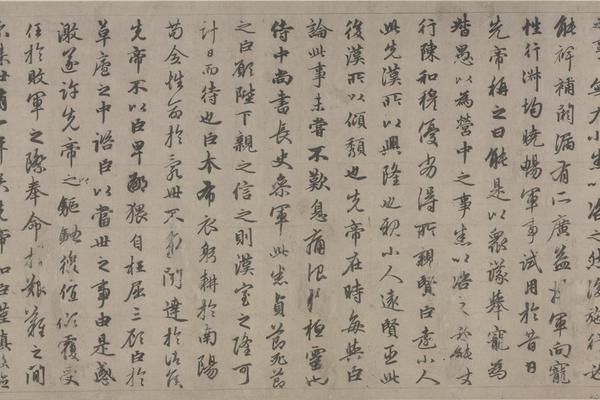 之事無大小悉以咨之然後施行必
能裨補闕漏有所廣益將軍向寵
性行淑均曉暢軍事試用於昔日
先帝稱之曰能是以眾議舉寵為
督愚以為營中之事悉以咨之
行陳和穆優劣得所親賢臣遠小人
此先漢所以興隆也親小人遠賢臣此
後漢所以傾頹也先帝在時每與臣
論此事未嘗不歎息痛恨於桓靈也
侍中尚書長史參軍此悉貞節死節
之臣願陛下親之信之則漢室之隆可
計日而待也臣本布衣躬耕於南陽
苟全性命於亂世不求聞達於諸侯
先帝不以臣卑鄙猥自枉屈三顧臣於
草廬之中諮臣以當世之事由是感
激遂許先帝之驅馳後值傾覆受
任於敗軍之際奉命於艱難之間
有一年矣先帝知臣謹慎故臨